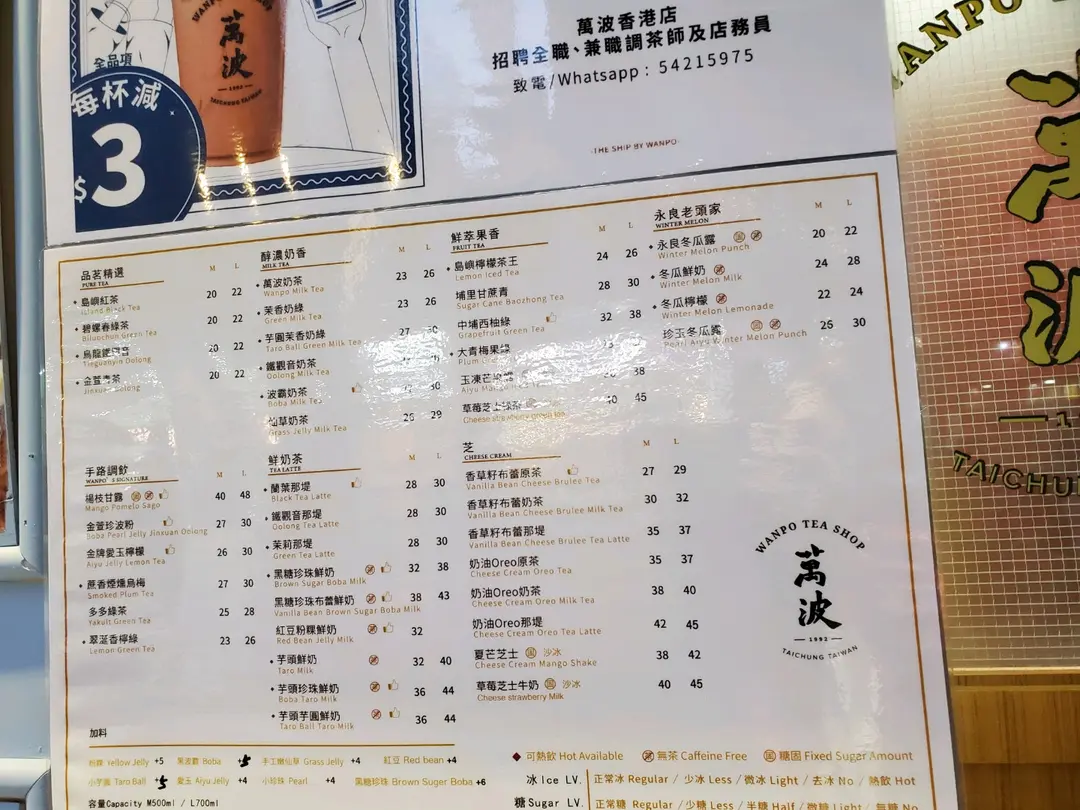 WANPO TEA SHOP
萬波
1992
TAICHUNG TAIWAN
全品項
每杯減
$3
萬波香港店
招聘全職、兼職調茶師及店務員
致電/Whatsapp : 54215975
THE SHIP BY WANPO
ANPO
萬
波
TAICHU
品茗精選 M L
PURE TEA
島嶼紅茶 20 22
Island Black Tea
碧螺春綠茶 20 22
Biluochun Green Tea
烏龍 20 22
Tieguanyin Oolong
金萱青茶 20 22
Jinxuan Oolong
醇濃奶香 M L
MILK TEA
萬波奶茶 23 26
Wanpo Milk Tea
茉香奶綠 23 26
Green Milk Tea
芋圓茉香奶綠 27 30
Taro Ball Green Milk Tea
鐵觀音奶茶
Oolong Milk Tea
波霸奶茶 30
Boba Milk Tea
仙草奶茶 26 29
Grass Jelly Milk Tea
鮮萃果香 M L
FRUIT TEA
島嶼檸檬茶王 24 26
Lemon Iced Tea
埔里甘蔗青 28 30
Sugar Cane Baozhong Tea
中埔西柚綠 32 38
Grapefruit Green Tea
大青梅果綠
Plum
玉凍芒 38
Aiyu Mango
草莓芝士 40 45
Cheese strawberry green tea
永良老頭家 M L
WINTER MELON
永良冬瓜露 固 20 22
Winter Melon Punch
冬瓜鮮奶 24 28
Winter Melon Milk
冬瓜檸檬 22 24
Winter Melon Lemonade
珍玉冬瓜露 固 26 30
Pearl Aiyu Winter Melon Punch
手路調飲 M L
WANPO'S SIGNATURE
楊枝甘露 固 40 48
Mango Pomelo Sago
金萱珍波粉 27 30
Boba Pearl Jelly Jinxuan Oolong
金牌愛玉檸檬 26 30
Aiyu Jelly Lemon Tea
蔗香煙燻烏梅 27 30
Smoked Plum Tea
多多綠茶 25 28
Yakult Green Tea
翠涎香檸綠 23 26
Lemon Green Tea
鮮奶茶 M L
TEA LATTE
蘭葉那堤 28 30
Black Tea Latte
鐵觀音那堤 28 30
Oolong Tea Latte
茉莉那堤 28 30
Green Tea Latte
黑糖珍珠鮮奶 32 38
Brown Sugar Boba Milk
黑糖珍珠布蕾鮮奶 38 43
Vanilla Bean Brown Sugar Boba Milk
紅豆粉粿鮮奶 32
Red Bean Jelly Milk
芋頭鮮奶 32 40
Taro Milk
芋頭珍珠鮮奶 36 44
Boba Taro Milk
芋頭芋圓鮮奶 36 44
Taro Ball Taro Milk
芝 M L
CHEESE CREAM
香草籽布蕾原茶 27 29
Vanilla Bean Cheese Brulee Tea
香草籽布蕾奶茶 30 32
Vanilla Bean Cheese Brulee Milk Tea
香草籽布蕾那堤 35 37
Vanilla Bean Cheese Brulee Tea Latte
奶油Oreo原茶 35 37
Cheese Cream Oreo Tea
奶油Oreo奶茶 38 40
Cheese Cream Oreo Milk Tea
奶油Oreo那堤 42 45
Cheese Cream Oreo Tea Latte
夏芒芝士 固 沙冰 38 42
Cheese Cream Mango Shake
草莓芝士牛奶 固 沙冰 40 45
Cheese strawberry Milk
WANPO TEA SHOP
萬波
1992
TAICHUNG TAIWAN
加料
粉粿 Yellow Jelly +5 黑波霸 Boba +5 手工嫩仙草 Grass Jelly +4 紅豆 Red bean +4
小芋圓 Taro Ball +5 愛玉 Aiyu Jelly +4 小珍珠 Pearl +4 黑糖珍珠 Brown Suger Boba +6
容量Capacity M500ml / L700ml
可熱飲 Hot Available 無茶 Caffeine Free 固 糖固 Fixed Sugar Amount
冰 Ice LV. 正常冰 Regular / 少冰 Less / 微冰 Light / 去冰 No / 熱飲 Hot
糖 Sugar LV. 正常糖 Regular / 少糖 Less / 半糖 Half / 微糖 Light / 無糖 No